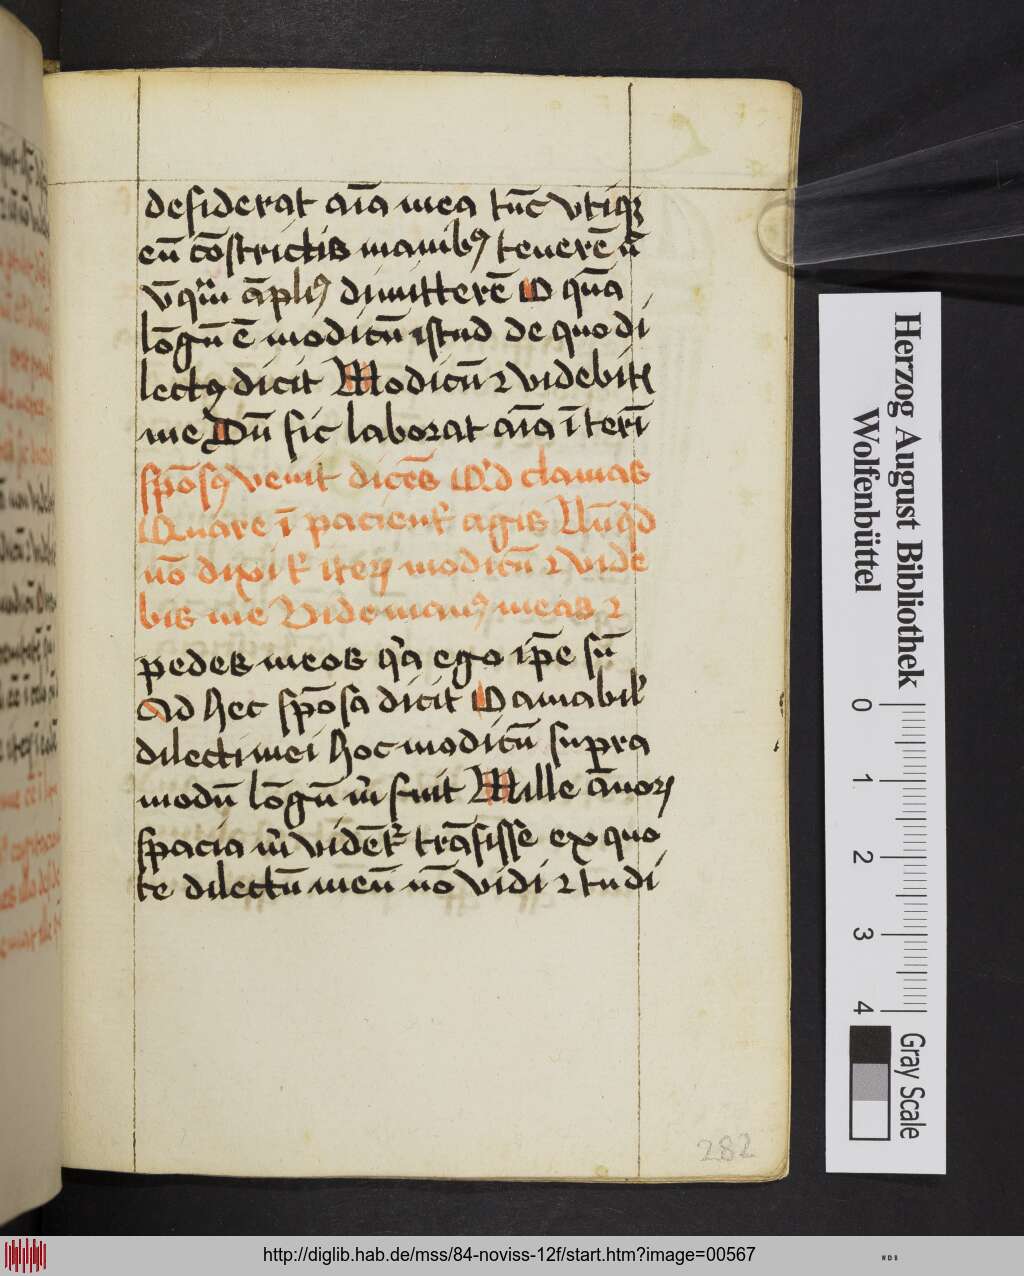 desiderat aīa mea tūc vtiqꝫ
eū cōstrictis manibꝰ tenerē ⁊
vqm̄ āpliꝰ dimitterē O quā
lōgū ē modicū istud de quo di
lectꝰ dicit Modicū ⁊ videbitꝭ
me Dū sic laborat aīa īterī
spōsꝰ venit dicēs Qͥd clamas
Quare ī pacient᷑ agis Nūqͥd
nō dixi t᷑ iteꝝ modicū ⁊ vide
bis me Vide manꝰ meas ⁊
pedes meos qͥa ego ip̄e sū
Ad hec spōsa dicit O amabil᷑
dilecti mei hoc modicū supra
modū lōgū m̄ fuit Mille ānoꝝ
spacia m̄ vidēt᷑ trāsisse ex quo
te dilectū meū nō vidi ⁊ tu di
282
Herzog August Bibliothek
Wolfenbüttel
0 1 2 3 4
Gray Scale
http://diglib.hab.de/mss/84-noviss-12f/start.htm?image=00567